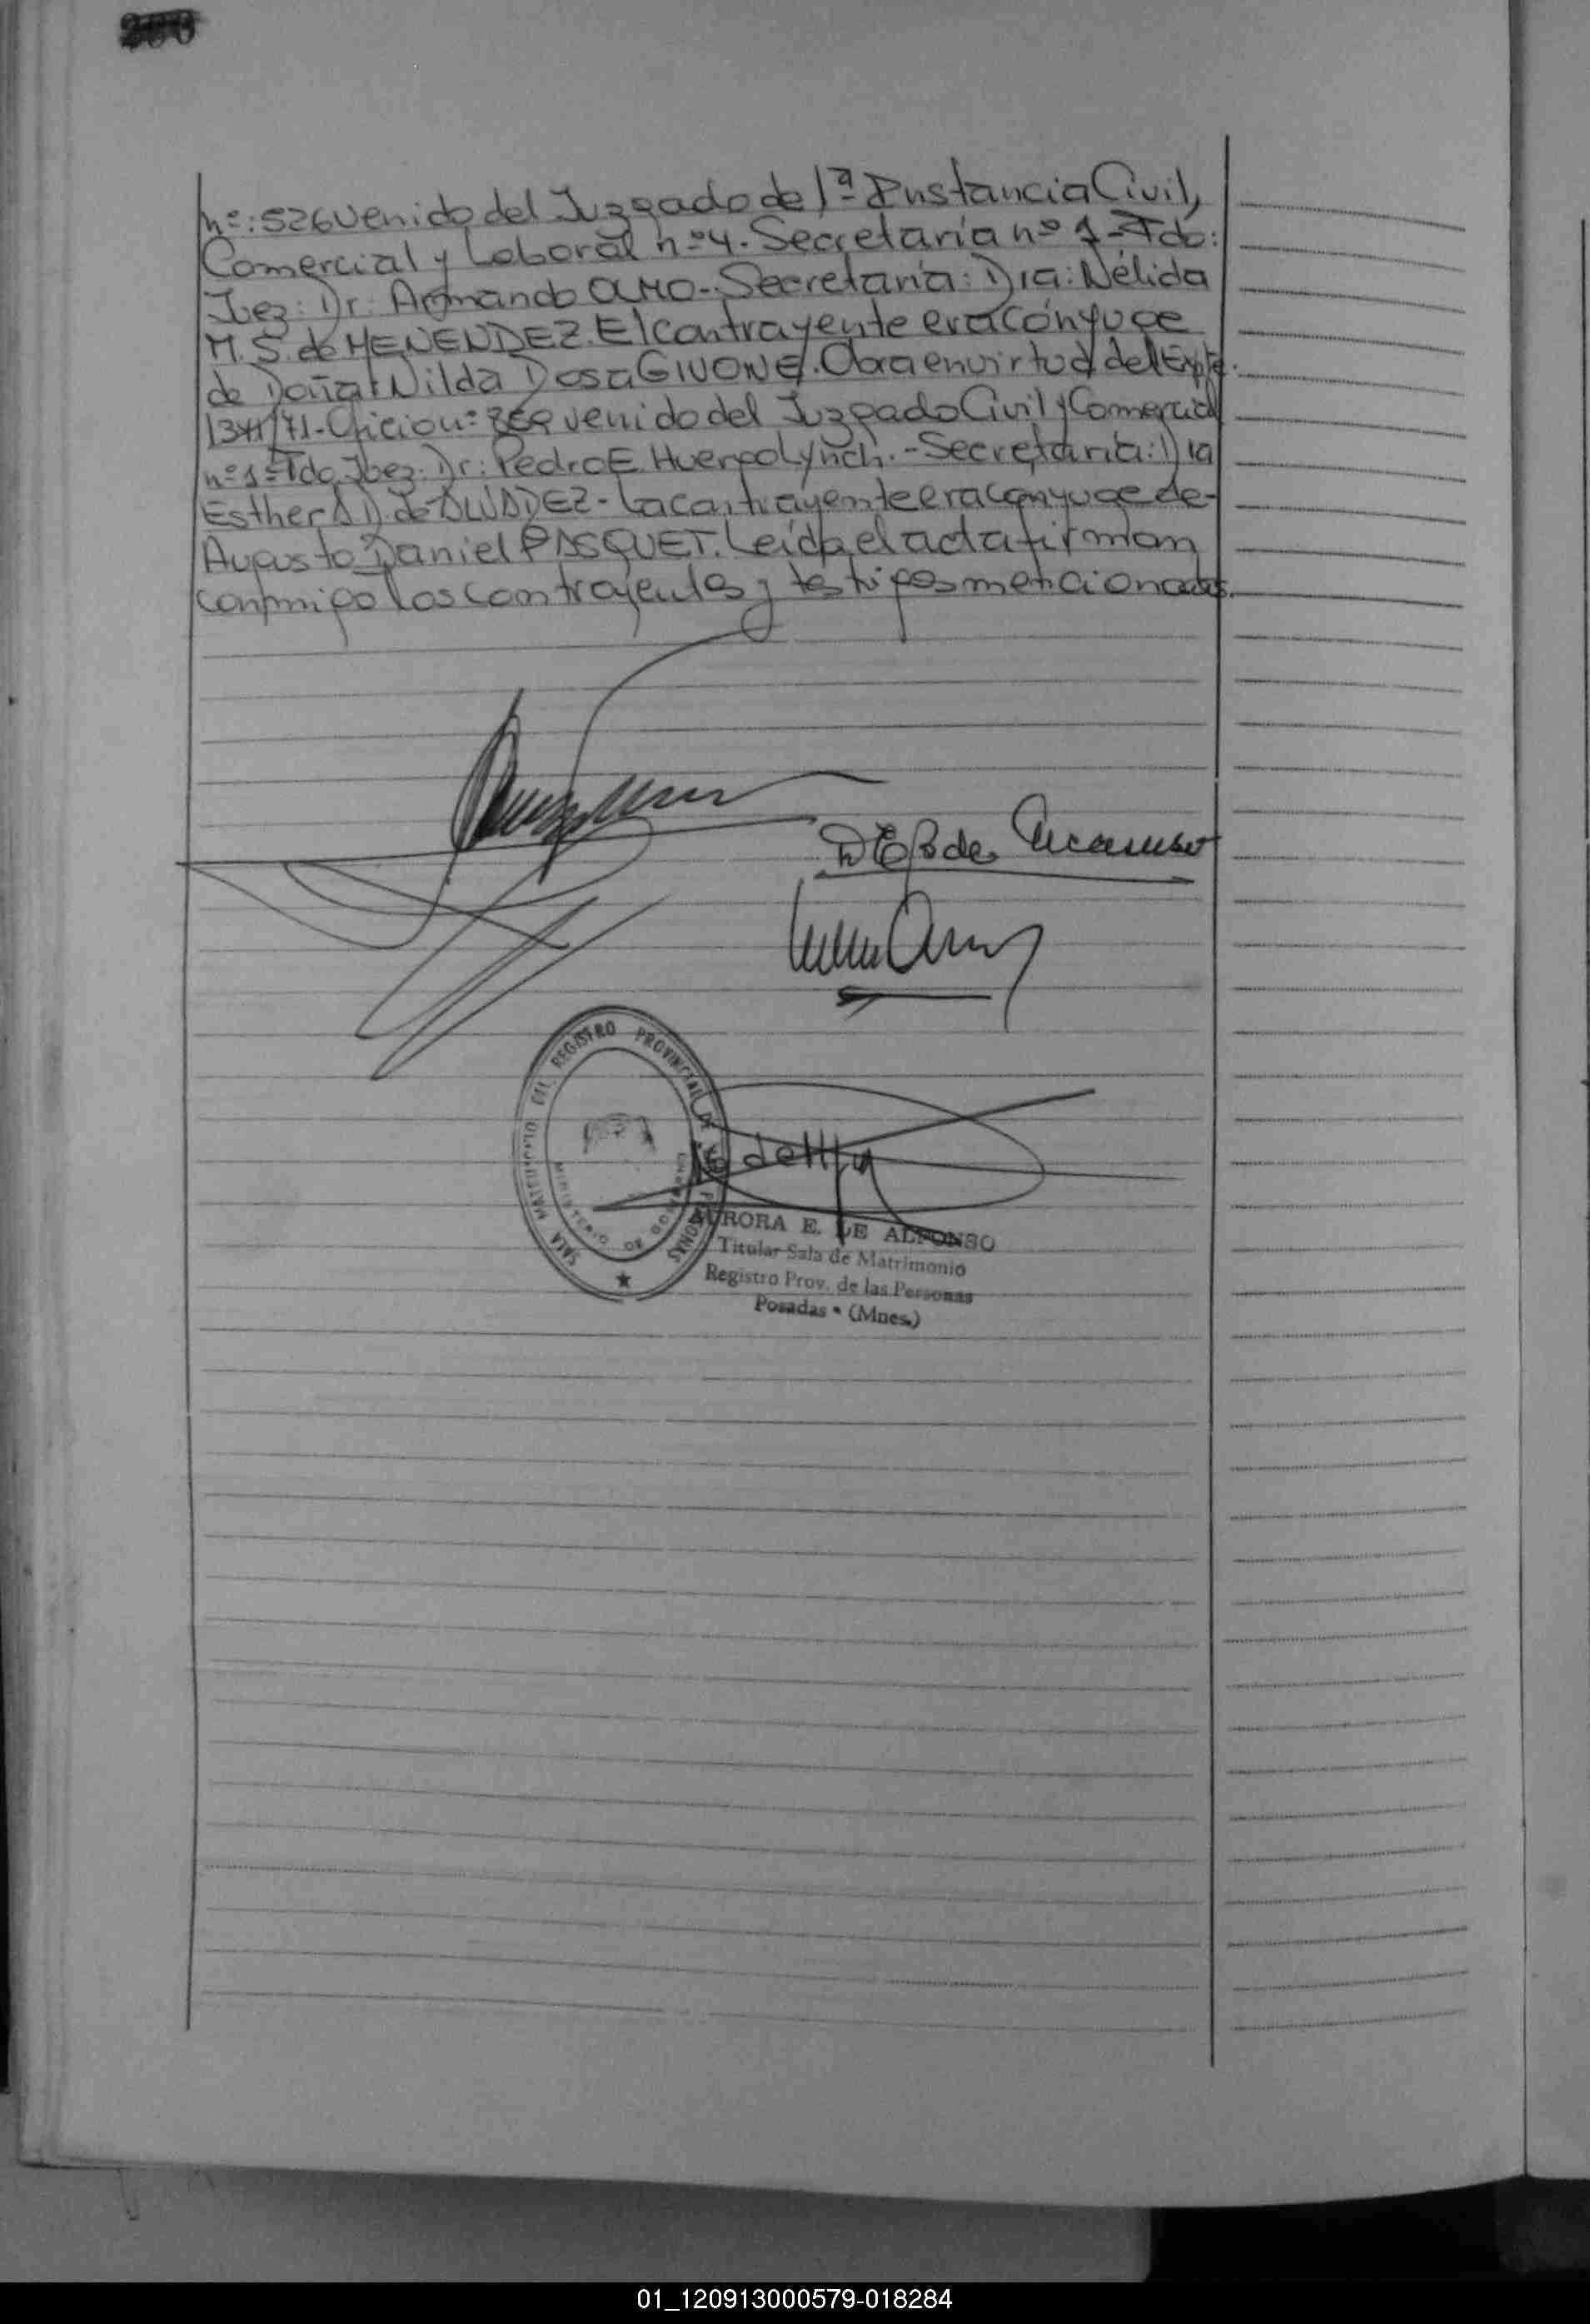 200
nº: 526 venido del Juzgado de 1ª Instancia Civil,
Comercial y Laboral nº 4. Secretaría nº 1 - Fdo:
Juez: Dr: Armando AMO - Secretaria: Dra: Nélida
M. S. de MENENDEZ. El contrayente era cónyuge
de Doña: Nilda Rosa GIVONE. Obra en virtud del Expte.
/71 - Oficio nº venido del Juzgado Civil y Comercial
nº 1 - Fdo. Juez: Dr: Pedro E. Huergo Lynch. - Secretaria: Dra
Esther de - La contrayente era cónyuge de -
Augusto Daniel PASQUET. Leída el acta firman
conmigo los contrayentes y testigos mencionados.
SALA MATRIMONIO DEL REGISTRO PROVINCIAL DE LAS PERSONAS
MINISTERIO DE GOBIERNO
AURORA E. DE ALFONSO
Titular Sala de Matrimonio
Registro Prov. de las Personas
Posadas • (Mnes.)
01_120913000579-018284